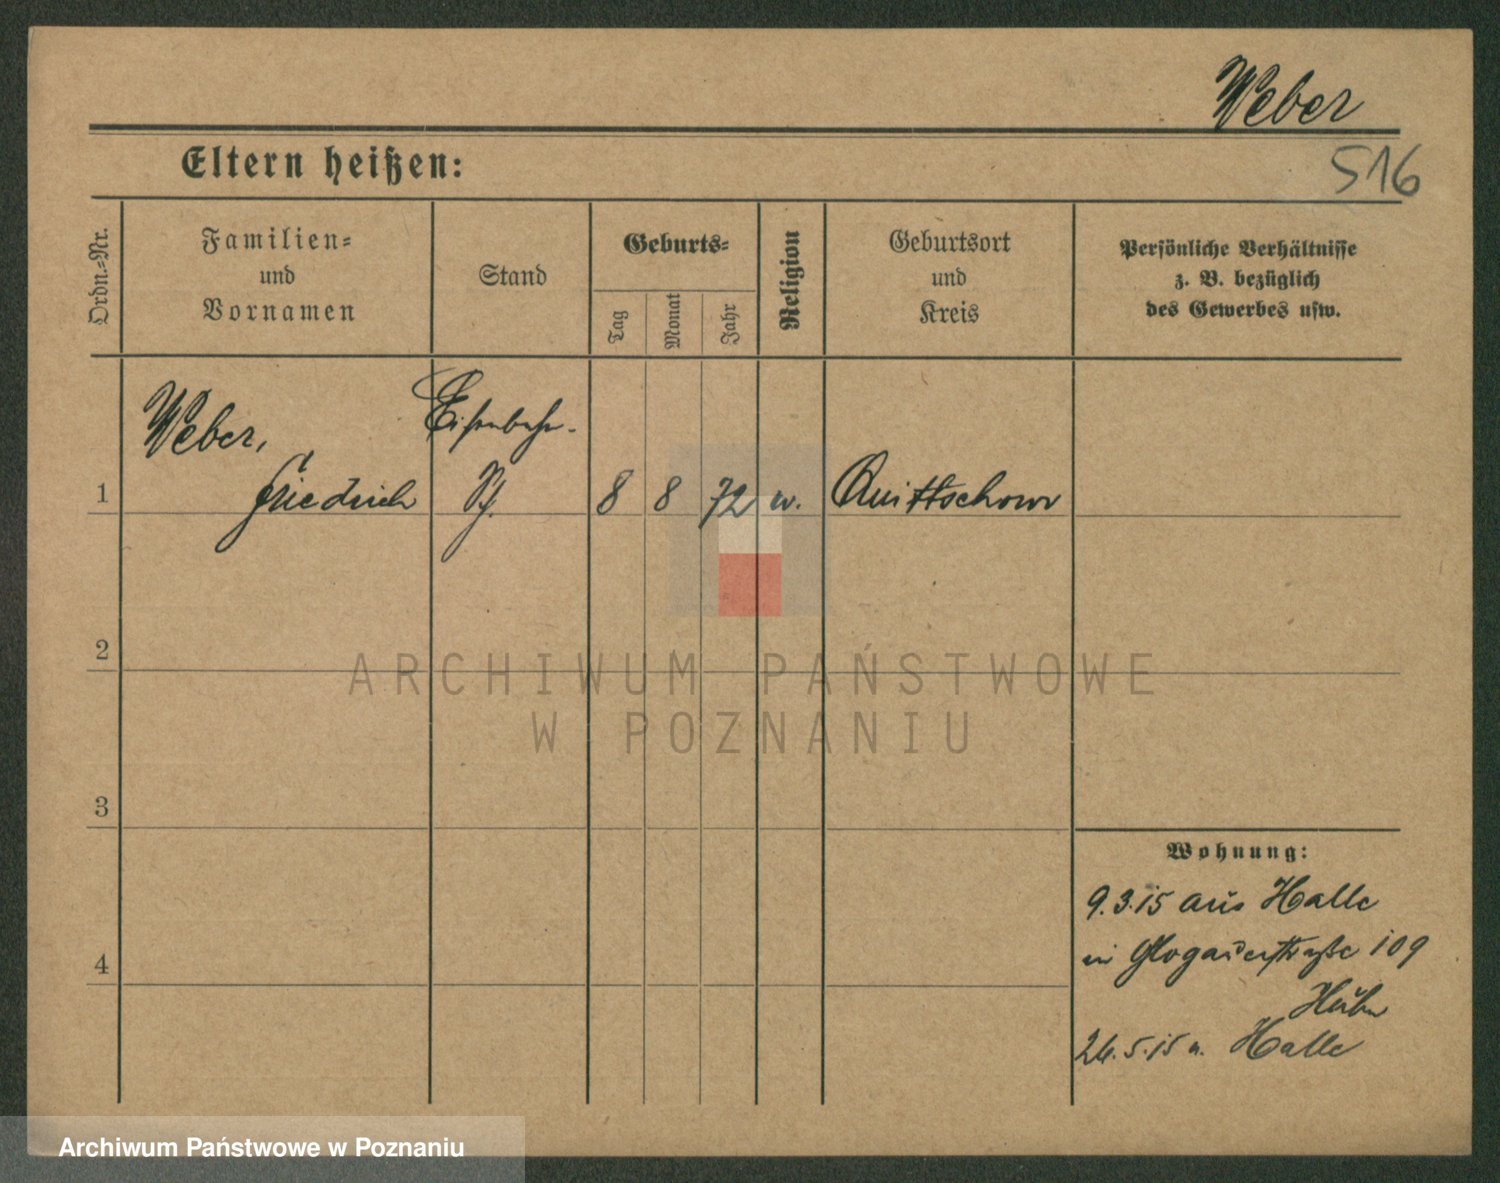 Weber
516
Eltern heißen:
Ordn.-Nr.
Familien-
und
Vornamen
Stand
Geburts-
Tag
Monat
Jahr
Religion
Geburtsort
und
Kreis
Persönliche Verhältnisse
z. B. bezüglich
des Gewerbes usw.
Weber,
Eisenbahn-
1 Friedrich 8 8 72 w. Quittschow
2
3
4
Wohnung:
9.3.15 aus Halle
in Glogauerstraße 109
26.5.15 n. Halle
ARCHIWUM PAŃSTWOWE
W POZNANIU
Archiwum Państwowe w Poznaniu